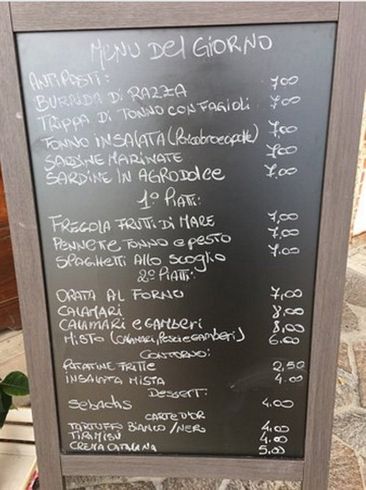 MENU DEL GIORNO
ANTIPASTI:
BURRIDA DI RAZZA 7,00
TRIPPA DI TONNO CON FAGIOLI 7,00
TONNO INSALATA (Pomodoro e cipolle) 7,00
SARDINE MARINATE 7,00
SARDINE IN AGRODOLCE 7,00
1º PIATTI:
FREGOLA FRUTTI DI MARE 7,00
PENNETTE TONNO e PESTO 7,00
SPAGHETTI ALLO SCOGLIO 7,00
2º PIATTI:
ORATA AL FORNO 7,00
CALAMARI 8,00
CALAMARI e GAMBERI 8,00
MISTO (CALAMARI, PESCI e GAMBERI) 6,00
CONTORNO:
PATATINE FRITTE 2,50
INSALATA MISTA 4,00
DESSERT:
SEBADAS 4,00
CARTE D'OR
TARTUFO BIANCO/NERO 4,00
TIRAMISU 4,00
CREMA CATALANA 5,00